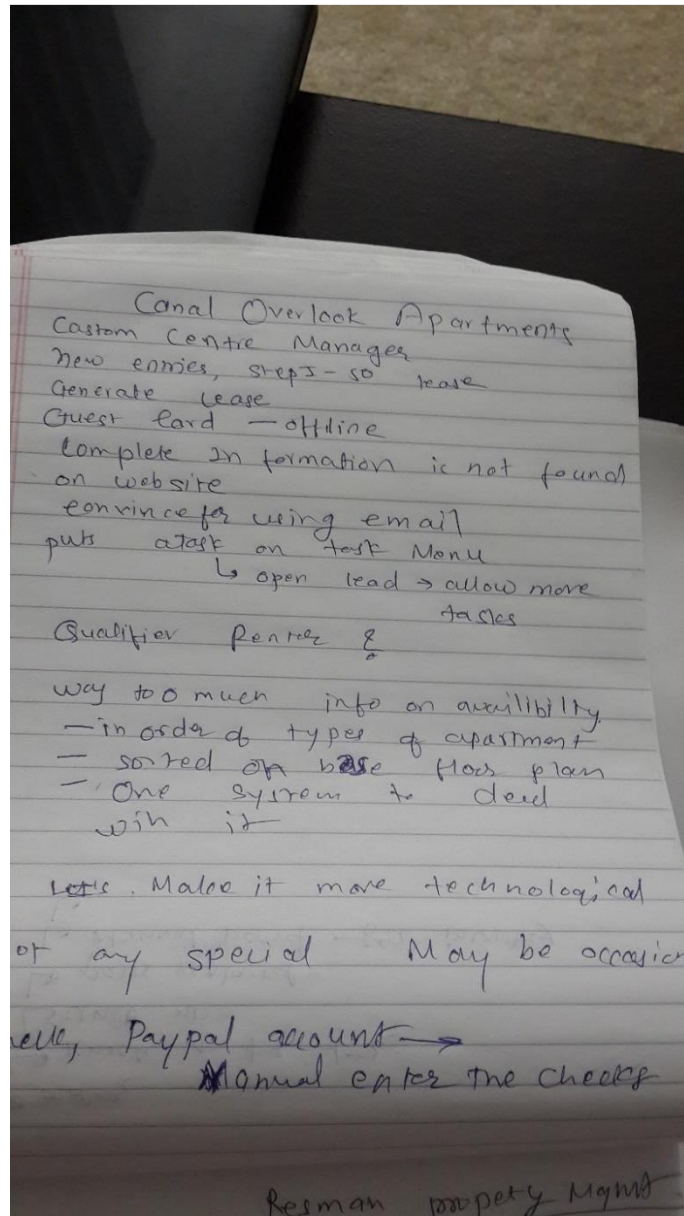 Canal Overlook Apartments
Castom Centre Manager
new enries, steps - so lease
Generate Lease
Guest Card — offline
Complete In formation is not found
on website
convince for using email
puts a task on task Menu
↳ open lead → allow more
tasks
Qualifier Renter
way too much info on availibilty
— in order of types of apartment
— sorted on base floor plan
— One system to deal
with it
Let's. Make it more technological
or any special May be occasion
Paypal account →
Manual enter the checks
Resman propety Mgmt